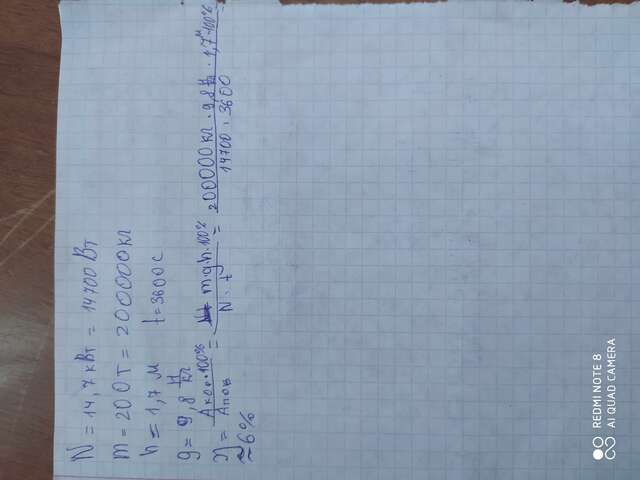 N = 14,7 кВт = 14700 Вт
m = 200 т = 200000 кг
h = 1,7 м t = 3600 с
g = 9,8 Н/кг
η = Aкор·100%/Aпов = mgh·100%/N·t = 200000 кг · 9,8 Н/кг · 1,7 м·100%/14700 · 3600 =
≈6%
REDMI NOTE 8
AI QUAD CAMERA